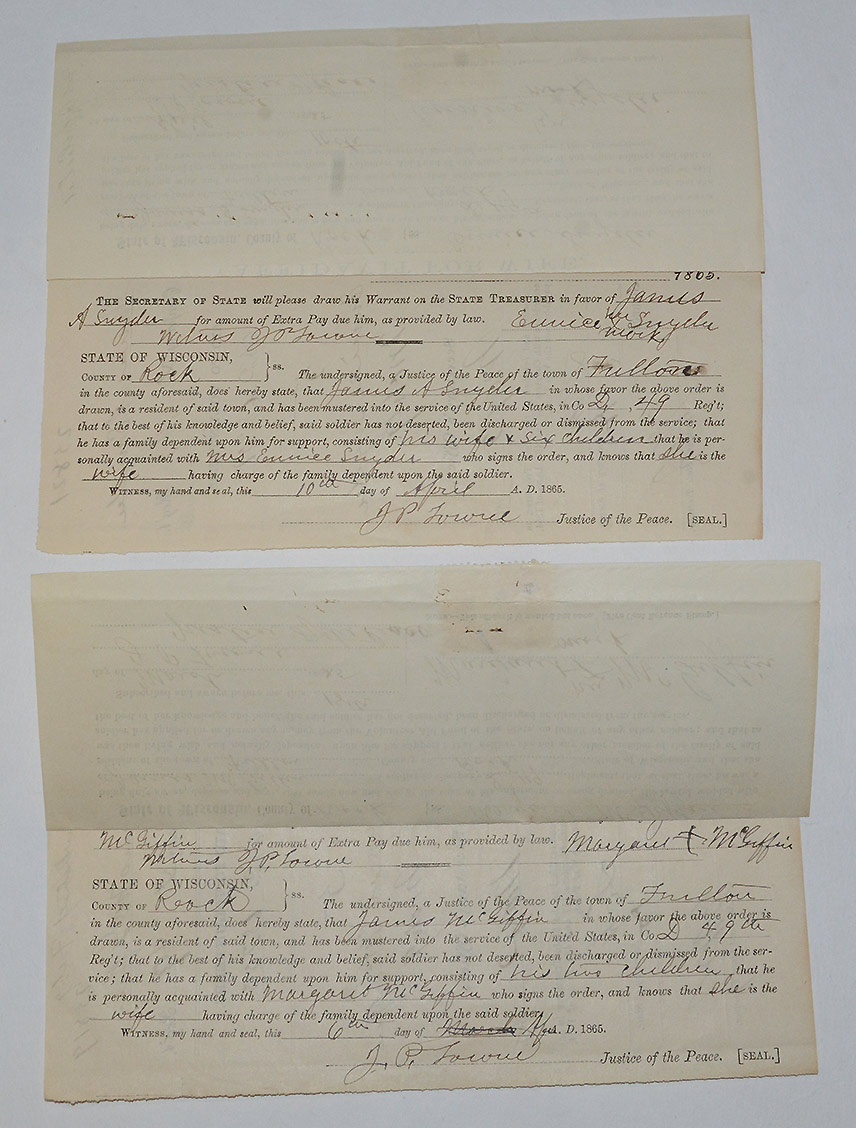 1865.
THE SECRETARY OF STATE will please draw his Warrant on the STATE TREASURER in favor of James
A Snyder for amount of Extra Pay due him, as provided by law. Eunice her Snyder
Witnes J P Towne mark
STATE OF WISCONSIN,
COUNTY OF Rock } ss. The undersigned, a Justice of the Peace of the town of Fulton
in the county aforesaid, does hereby state, that James A Snyder in whose favor the above order is
drawn, is a resident of said town, and has been mustered into the service of the United States, in Co D, 49 Reg't;
that to the best of his knowledge and belief, said soldier has not deserted, been discharged or dismissed from the service; that
he has a family dependent upon him for support, consisting of his wife & six children that he is per-
sonally acquainted with Mrs Eunice Snyder who signs the order, and knows that she is the
wife having charge of the family dependent upon the said soldier.
WITNESS, my hand and seal, this 10th day of April A. D. 1865.
J P Towne Justice of the Peace. [SEAL.]
McGiffin for amount of Extra Pay due him, as provided by law. Margaret + McGiffin
Witnes J. P. Towne
STATE OF WISCONSIN,
COUNTY OF Rock } ss. The undersigned, a Justice of the Peace of the town of Fulton
in the county aforesaid, does hereby state, that James McGiffin in whose favor the above order is
drawn, is a resident of said town, and has been mustered into the service of the United States, in Co D 49th
Reg't; that to the best of his knowledge and belief, said soldier has not deserted, been discharged or dismissed from the ser-
vice; that he has a family dependent upon him for support, consisting of his two children, that he
is personally acquainted with Margaret McGiffin who signs the order, and knows that she is the
wife having charge of the family dependent upon the said soldier.
WITNESS, my hand and seal, this 6th day of March A. D. 1865.
J. P. Towne Justice of the Peace. [SEAL.]